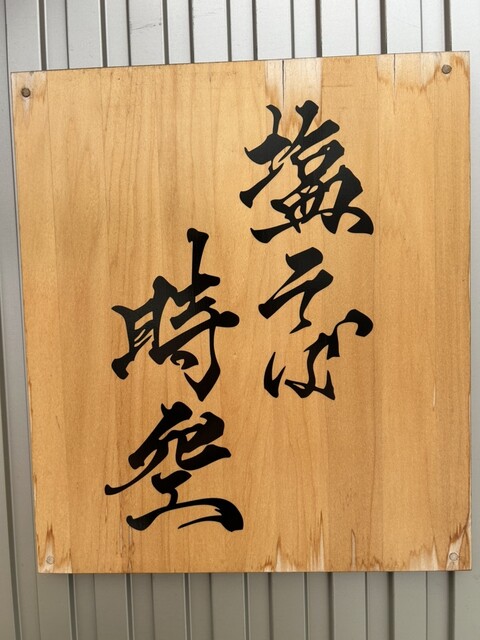 塩そば
時空